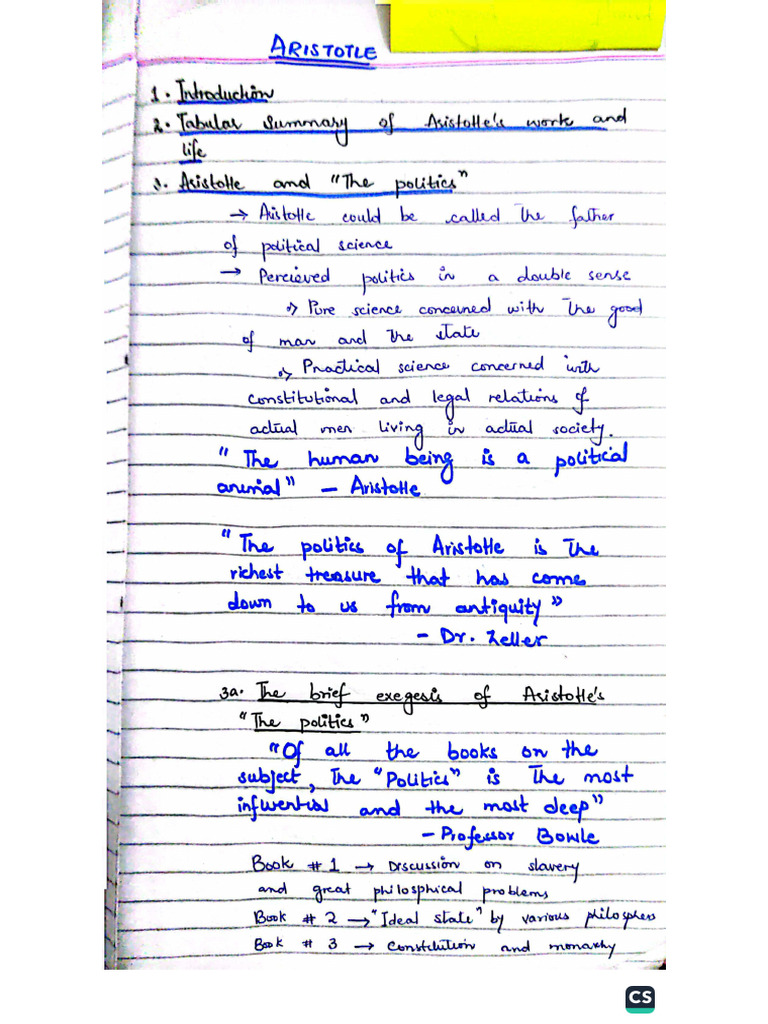 ARISTOTLE
1. Introduction
2. Tabular summary of Aristotle's work and
life
3. Aristotle and "The politics"
→ Aristotle could be called the father
of political science
→ Percieved politics in a double sense
i) Pure science concerned with the good
of man and the state
ii) Practical science concerned with
constitutional and legal relations of
actual men living in actual society.
"The human being is a political
animal" - Aristotle
"The politics of Aristotle is the
richest treasure that has come
down to us from antiquity"
- Dr. Zeller
3a. The brief exegesis of Aristotle's
"The politics"
"Of all the books on the
subject, the "Politics" is the most
influential and the most deep"
- Professor Bowle
Book # 1 → Discussion on slavery
and great philosphical problems
Book # 2 → "Ideal state" by various philosphers
Book # 3 → Constitution and monarchy
CS